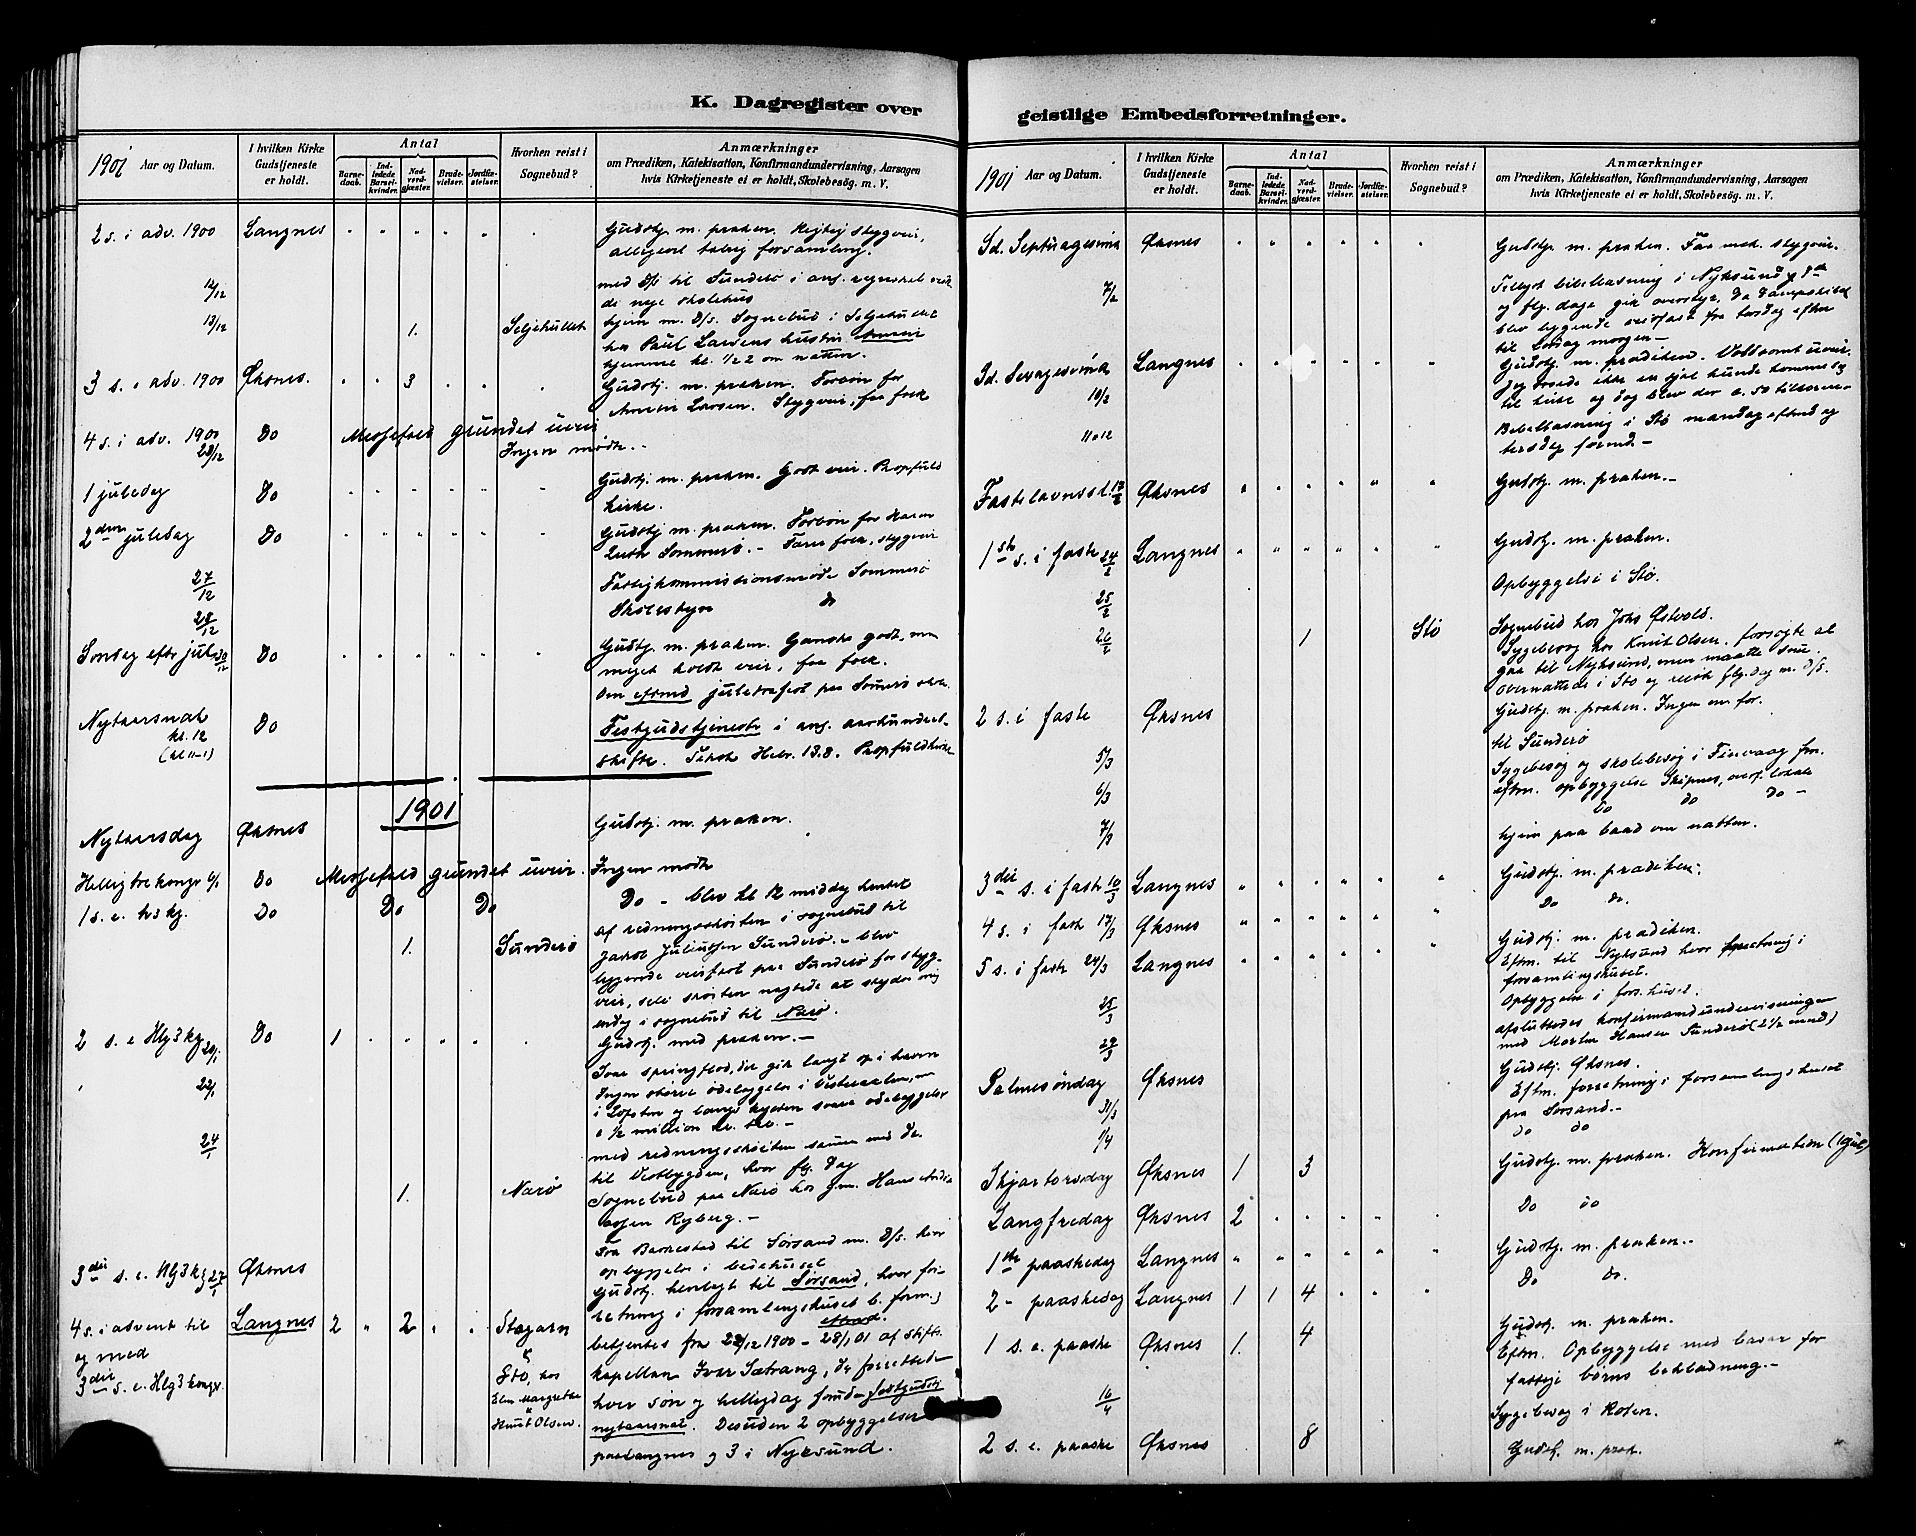 K. Dagregister over
1901 Aar og Datum.
I hvilken Kirke Gudstjeneste er holdt.
Antal
Barnedaab.
Indledede Barselkvinder.
Nadverdgjæster.
Brudevielser.
Jordfæstelser.
Hvorhen reist i Sognebud?
Anmærkninger
om Prædiken, Katekisation, Konfirmandundervisning, Aarsagen
hvis Kirketjeneste ei er holdt, Skolebesøg. m. V.
2 s. i adv. 1900 Langnes " " " " " " Gudstj. m. præken.
alligevel talrig forsamling.
12/12 med D/S til Sunderø i ans.
de nye skolehus
13/12 1. Seljehullet hjem m. D/S. Sognebud i Seljehullet
hos Paul Larsens hustru
hjemme kl. 1/2 2 om natten.
3 s. i adv. 1900 Øksnes. " " 3 " " " Gudstj. m. præken. Forbøn for
Larsen. Stygveir, faa folk
4 s. i adv. 1900 23/12 Do Messefald grundet uveir
Ingen mødte. -
1 juledag Do " " " " " " Gudstj. m. præken. Godt veir. Propfuld
kirke.
2den juledag Do " " " " " " Gudstj m. præken. Forbøn for Karen
Sommerø. - Faa folk, stygveir
27/12 Fattigkommissionsmøde Sommerø
28/12 Skolestyre do
Søndag efter jul 30/12 Do " " " " " " Gudtj. m. præken. Ganske godt, men
meget koldt veir, faa folk.
Om efterm juletræfest paa
Nytaarsnat kl. 12 (kl 11-1) Do Festgudstjeneste i anl. aarhundret-
skifte. Tekst Hebr. 13.8. Propfuld kirke
1901
Nytaarsdag Øksnes Gudstj. m. præken.
Hellig tre konge 6/1 Do Messefald grundet uveir. Ingen mødte
1 s. e. h3kg. Do Do Do Do - blev kl 12 middag hentet
af redningsskøiten i sognebud til
1. Sunderø Jakob Juliussen Sunderø. - blev
liggende veirfast paa Sunderø for styg-
veir, selv skøiten nægtede at skyde mig
endog i sognebud til Nærø.
2 s. e Hlg3kg 20/1 Do 1 " " " " " Gudstj. med præken. -
22/1 Svær springflod, der gik langt op i haven
Ingen større ødelæggelse i Vesteraalen, men
i Lofoten og langs kysten svære ødelæggelser
1/2 million kr.
24/1 med redningsskøiten sammen med
til Vestbygden, hvor flg. dag
1. Nærø Sognebud paa Nærø hos gm. Hans Andre
assen Ryberg. -
Fra Barkestad til Sørsand m. D/S. hvor
opbyggelse i bedehuset
3die s. e. Hlg3kg 27/1 Øksnes Gudstj. henlagt til Sørsand, hvor for-
retning i forsamlingshuset
4 s. i advent til og med 3die s. e. Hlg3konge. Langnes 2 " 2 " " betjentes fra 23/12 1900 - 28/1 01 af stifts-
kapellan Iver Sætrang, der forrettede
Stø, hos hver søn og helligdag
Knut Olsen. nytaarsnat. Desuden 2 opbyggelser
paa Langnes og 3 i Nyksund.
geistlige Embedsforretninger.
1901 Aar og Datum.
I hvilken Kirke Gudstjeneste er holdt.
Antal
Barnedaab.
Indledede Barselkvinder.
Nadverdgjæster.
Brudevielser.
Jordfæstelser.
Hvorhen reist i Sognebud?
Anmærkninger
om Prædiken, Katekisation, Konfirmandundervisning, Aarsagen
hvis Kirketjeneste ei er holdt, Skolebesøg. m. V.
Sd. Septuagesima Øksnes " " " " " " Gudstj. m. præken. Faa mød. stygveir.
7/2 Tillyst bibellæsning i Nyksund
og flg. dage gik overstyr, da
blev liggende veirfast fra torsdag efterm
til Lørdag morgen -
Sd. Sexagesima 10/2 Langnes " " " " " Gudstj. m. prædiken. Voldsomt uveir.
Jeg troede ikke en sjæl kunde komme sig
til kirke og dog blev der c. 50 tilhørere. -
11 o 12 Bibellæsning i Stø mandag efterm og
tirsdag formd. -
Fastelavnssd. Øksnes " " " " " " Gudstj. m. præken. -
1ste s. i faste 24/2 Langnes " " " " " " Gudstj. m. præken.
25/2 Opbyggelse i Stø.
26/2 1 Stø Sognebud hos Johs Østvold.
Sygebesøg hos Knut Olsen. forsøgte at
gaa til Nyksund, men maatte snu.
overnattede i Stø og reiste flg. dag m. D/S.
2 s. i faste Øksnes Gudstj. m. præken. Ingen om for.
til Sunderø
5/3 Sygebesøg og skolebesøg i Finvaag fm.
eftm. opbyggelse Skipnes,
6/3 do do do -
7/3 hjem paa baad om natten.
3die s. i faste 10/3 Langnes " " " " " " Gudstj. m. prædiken.
4 s. i faste 17/3 Øksnes " " " " " " Do do.
5 s. i faste 24/3 Langnes " " " " " " Gudstj. m. prædiken.
Eftm. til Nyksund hvor forretning i
forsamlingshuset.
25/3 Opbyggelse i fors.huset.
29/3 afsluttedes konfirmandundervisningen
med Morten Hansen Sunderø (2 1/2 mnd)
Palmesøndag 31/3 Øksnes Gudstj. Øksnes.
Eftm. forretning i forsamlingshuset
paa Sørsand. -
1/4 do do
Skjærtorsdag Øksnes 1 3 Gudstj. m. præken. Konfirmation (1 gut)
Langfredag Øksnes 2 " " " " " Do do
1ste paaskedag Langnes " " " " " " Gudstj. m. præken. -
2 - paaskedag Langnes 1 1 4 " " " Do do.
1 s. e. paaske Øksnes 1. 4 Gudstj. m. præken.
Eftm. Opbyggelse med bazar for
fattige børns beklædning. -
16/4 Sygebesøg i
2 s. e. paaske Øksnes 8 Gudstj. m. præk.